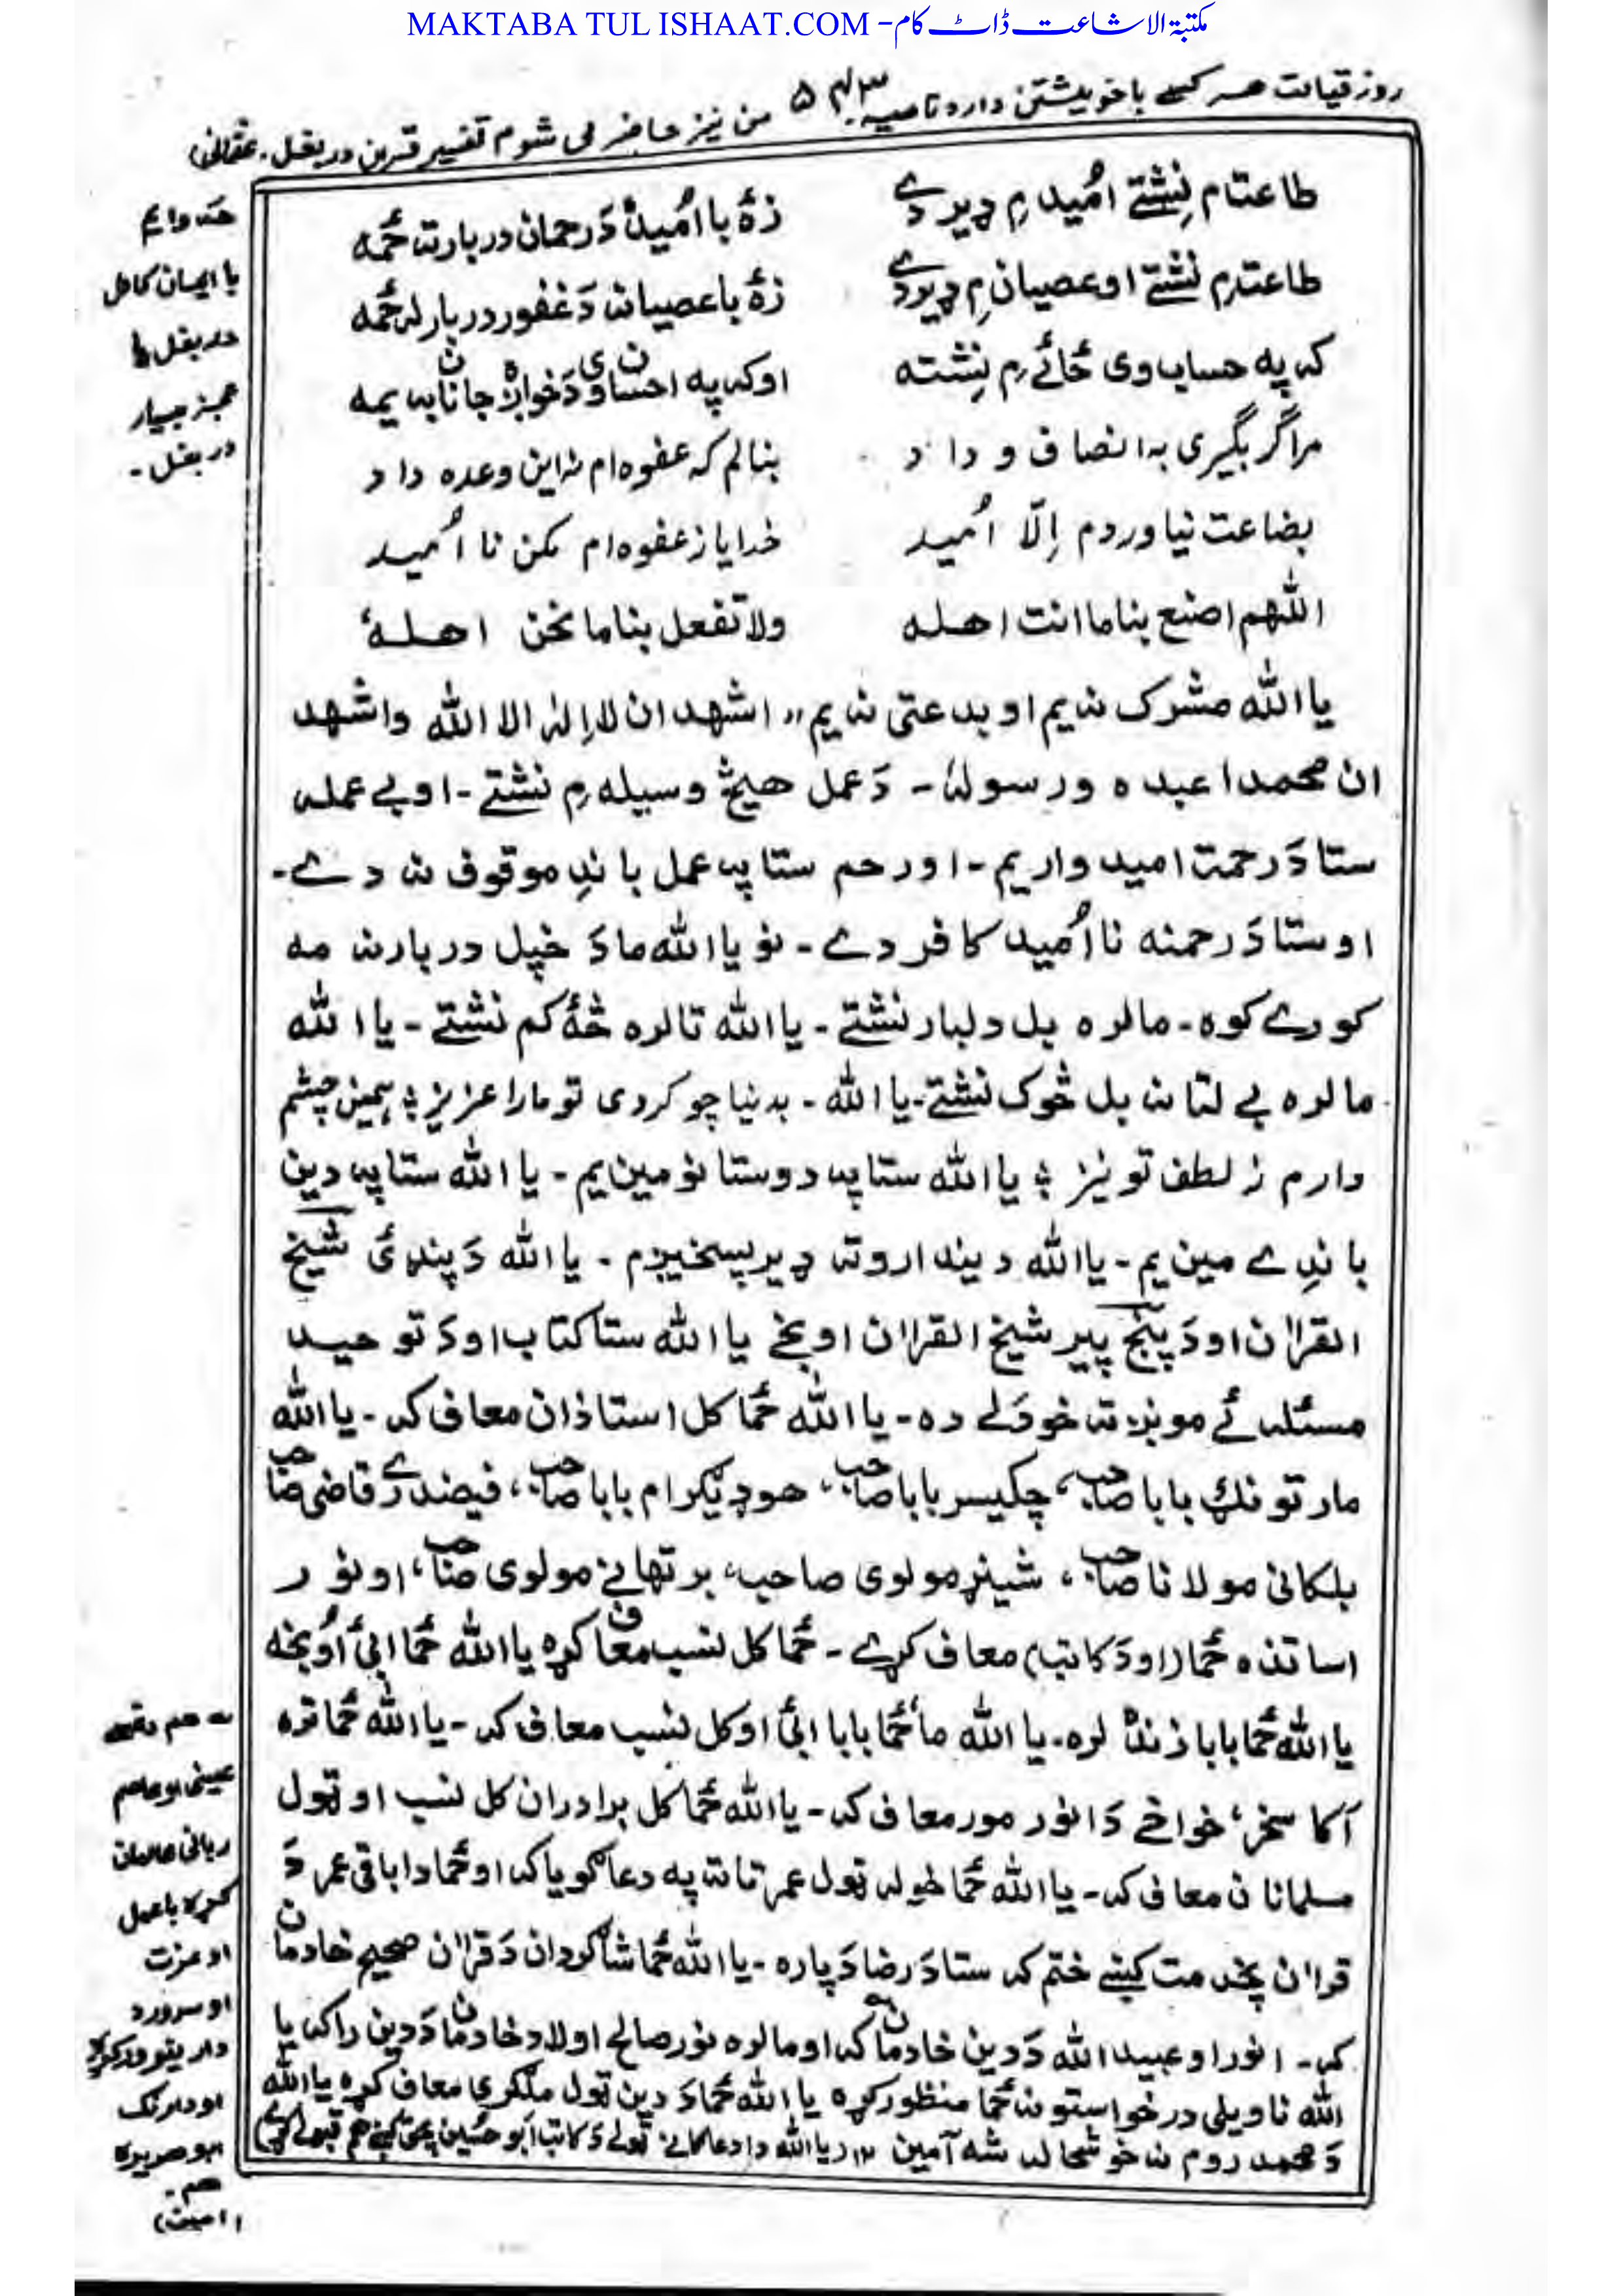 MAKTABA TUL ISHAAT.COM - مکتبة الاشاعت ڈاٹ کام
روز قیامت هر کسے باخویشتن دارد ناصیه ۵۴۳ من نیز حاضر می شوم تفسیر قرین در بغل
طاعتام نِشتے اُمید مِ ډیر دے زۀ با اُمید دَ رحمان دربارته ځمه
طاعت مِ نشتے او عصیان مِ ډیر دے زۀ با عصیان دَ غفور دربار له ځمه
که په حساب وی ځائے مِ نِشته اوکه په احسان وی دَ خواږه جانان به یمه
مرا گر بگیری به انصاف و داد بنالم که عفوه ام نه این وعده داد
بضاعت نیاوردم اِلّا اُمید خدایا ز عفوه ام مکن نا اُمید
اللهم اصنع بنا ما انت اهله ولا تفعل بنا ما نحن اهلهٗ
یا الله مشرک نه یم او بدعتی نه یم،، اشهد ان لا اِله الا الله واشهد
ان محمدا عبده ورسولهٗ - دَ عمل هیڅ وسیله مِ نشتے - او بے عمله
ستا دَ رحمت امیدوار یم - او رحم ستا په عمل باندِ موقوف نه دے -
او ستا دَ رحمته نا اُمید کافر دے - نو یا الله ما دَ خپل دربارنه مه
کورے کوه - مالره بل دلبار نشتے - یا الله تا لره څهٔ کم نشتے - یا الله
مالره بے لتا نه بل څوک نشتے - یا الله - بدنیا چو کردی تو مارا عزیز ؛ همین چشم
دارم ز لطف تو نیز ؛ یا الله ستا په دوستانو مین یم - یا الله ستا په دین
باندِے مین یم - یا الله دیندارو ته ډیر پسخیږم - یا الله دَ پنډئ شیخ
القران او دَ پنج پیر شیخ القران اوبخے یا الله ستا کتاب او دَ توحید
مسئله ئے مونږ ته خودلے ده - یا الله ځما کل استاذان معاف که - یا الله
مارتونگ بابا صاحب، چکیسر بابا صاحب، هوډیگرام بابا صاحب، فیضدرے قاضی صاحب
بلکانی مولانا صاحب، شینړ مولوی صاحب، برتهانے مولوی صاحب، او نور
اساتذه ځما (او دَ کاتب) معاف کړے - ځما کل نسب معاف کړه یا الله ځما ابئ اُوبخه
یا الله ځما بابا ژنډ لره - یا الله ما ځما بابا ابئ او کل نسب معاف که - یا الله ځما تره
آکا سخر، خواخے دَ انور مور معاف که - یا الله ځما کل برادران کل نسب او ټول
مسلمانان معاف که - یا الله ځما خوله ټول عمر تاته په دعا گویا که او ځما دا باقی عمر دَ
قران په خدمت کښے ختم که ستا دَ رضا دَپاره - یا الله ځما شاگردان دَ قران صحیح خادمان
که - انور او عبید الله دَ دین خادمان که او مالره نور صالح اولاد خادمان دَ دین راکه یا
الله ناویلی درخواستونه ځما منظور کړه یا الله ځما دَ دین ټول ملگری معاف کړه یا الله
دَ محمد روم نه خوشحاله شه آمین
با ایمان کامل
در بغل ها
عجز بسیار
در بغل -
ربانی عالمان
او عزت
هم -
(امین)